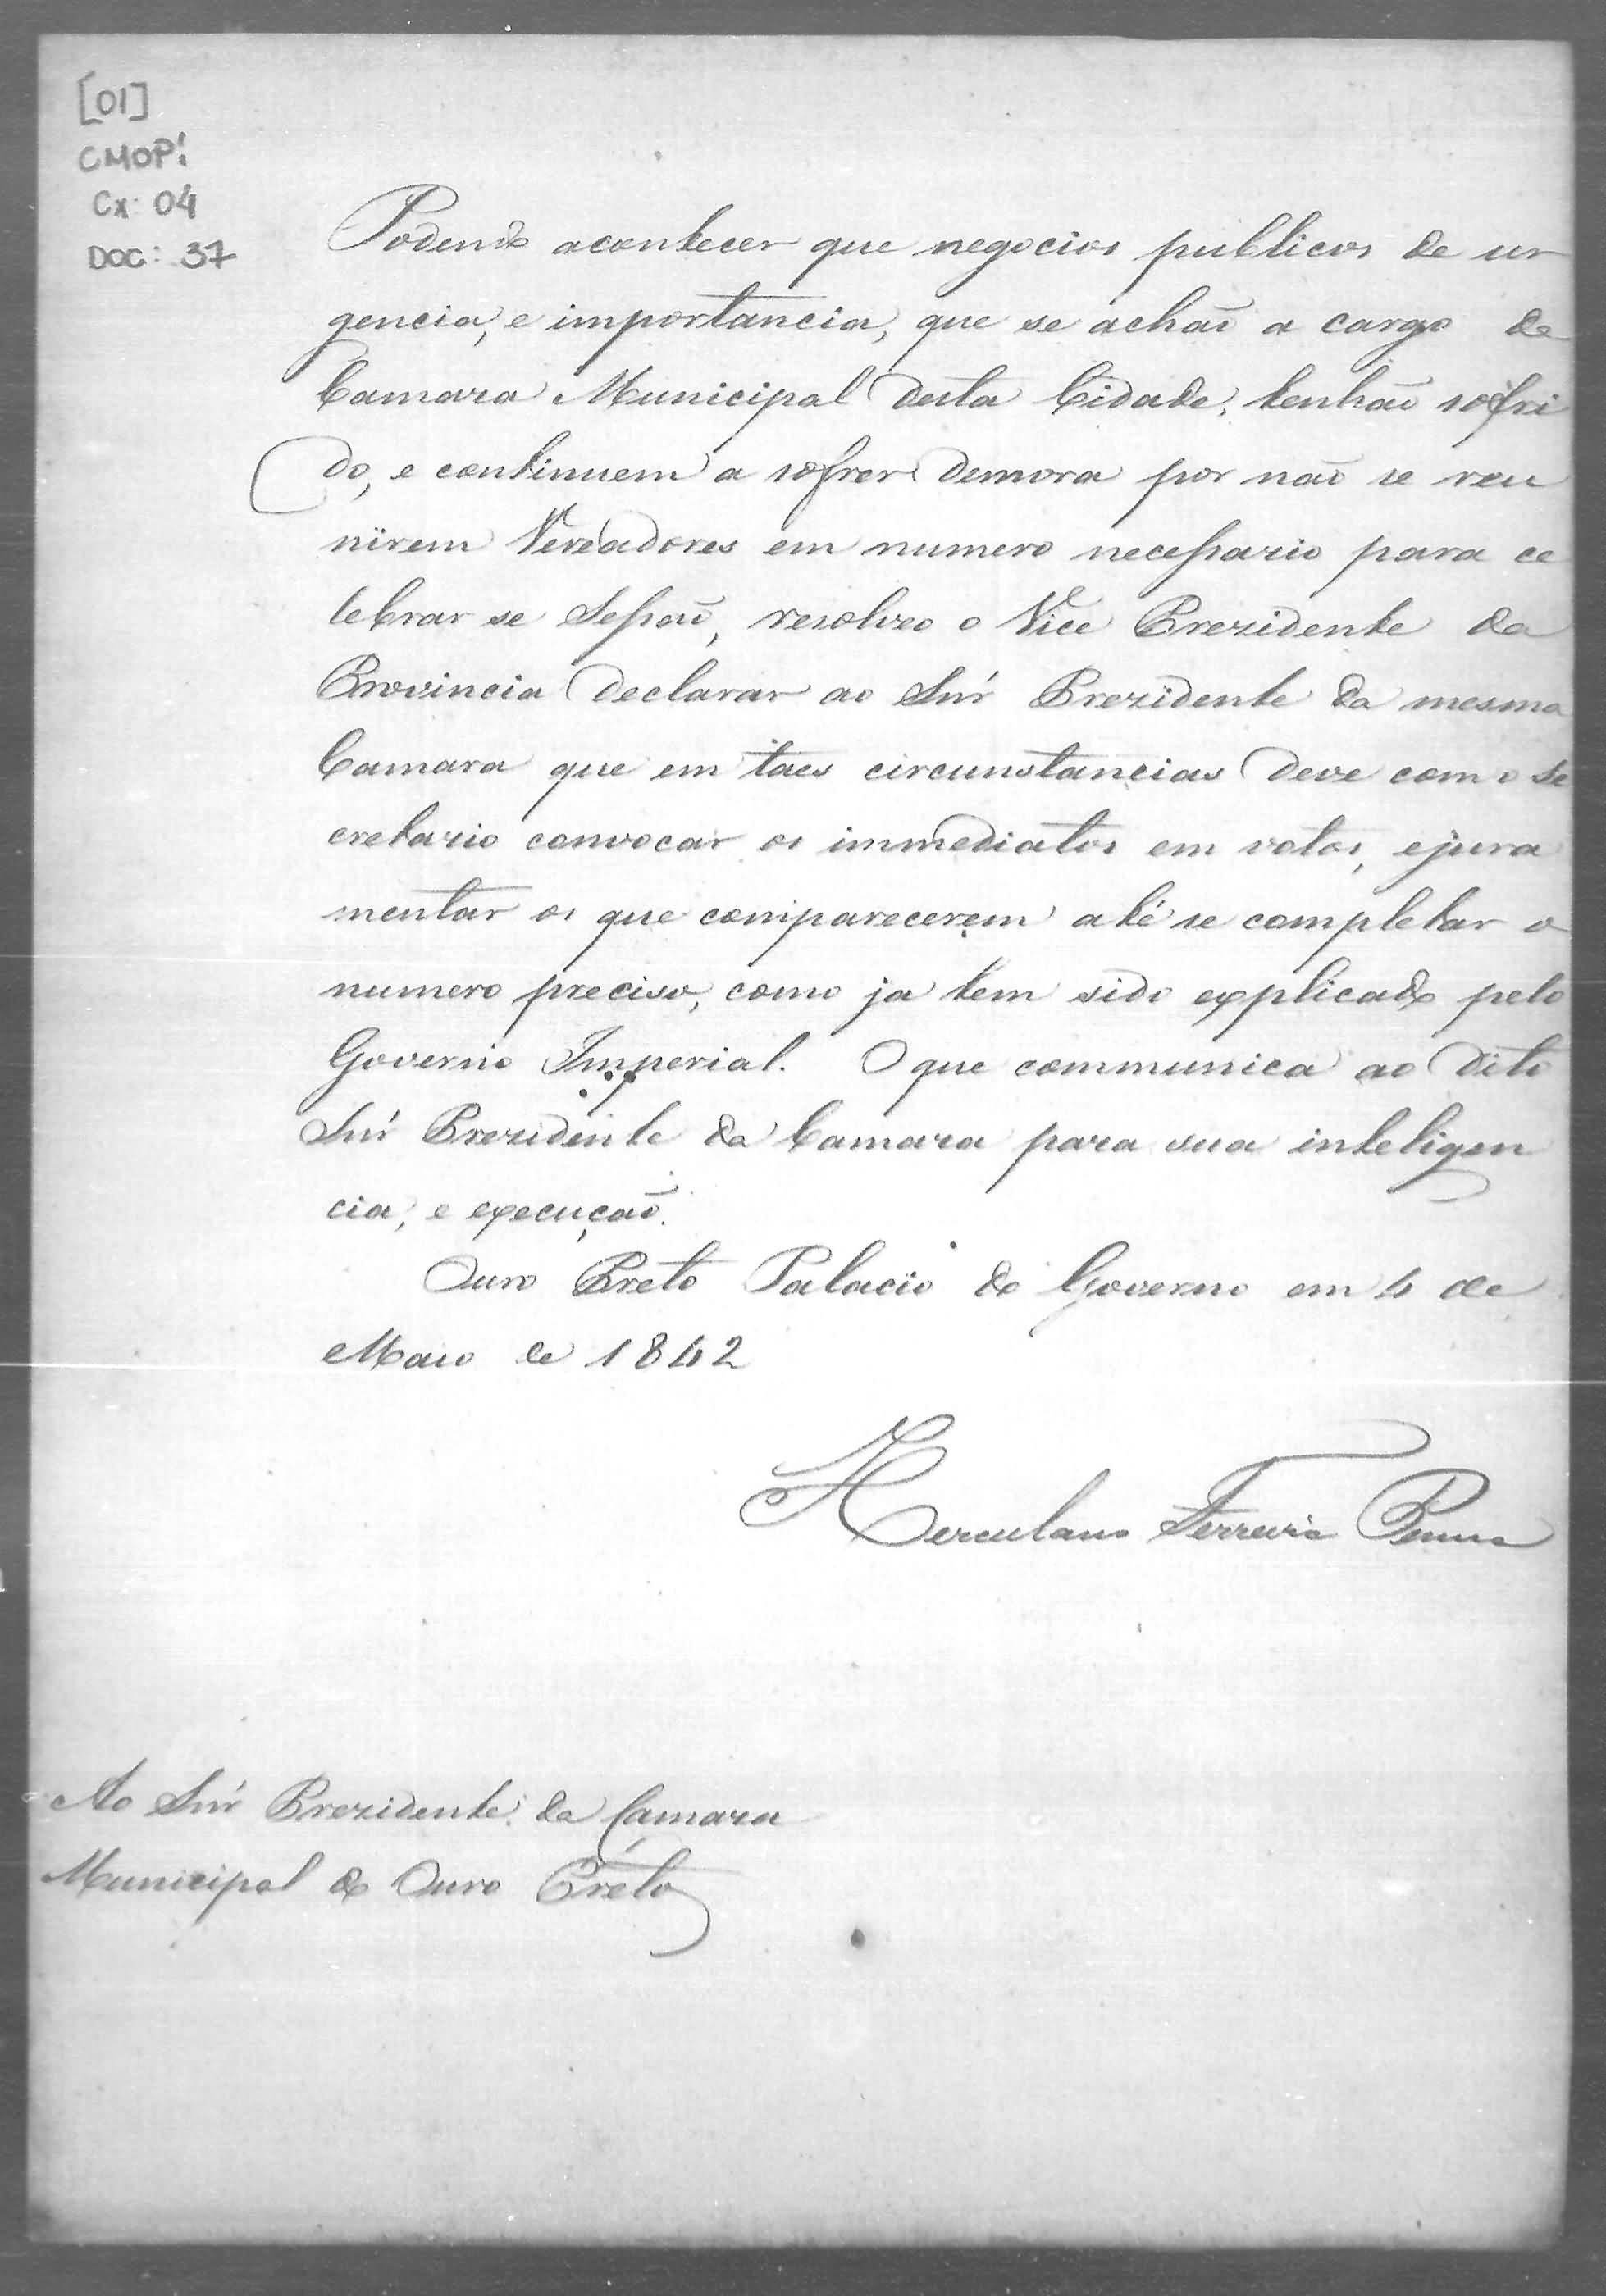 [01]
CMOP!
Cx: 04
DOC: 37
Podendo acontecer que negocios publicos de ur
gencia, e importancia, que se achaõ a cargo da
Camara Municipal desta Cidade, tenhaõ sofri
do, e continuem a sofrer demora por naõ se reu
nirem Vereadores em numero necessario para ce
lebrar se Sessaõ, resolveo o Vice Prezidente da
Provincia declarar ao Snr Prezidente da mesma
Camara que em taes circunstancias deve como Se
cretario convocar os immediatos em votos, e jura
mentar os que comparecerem até se completar o
numero preciso, como ja tem sido explicado pelo
Governo Imperial. O que communica ao dito
Snr Prezidente da Camara para sua inteligen
cia, e execuçaõ.
Ouro Preto Palacio do Governo em 4 de
Maio de 1842
Herculano Ferreira Penna
Ao Snr Prezidente da Camara
Municipal do Ouro Preto